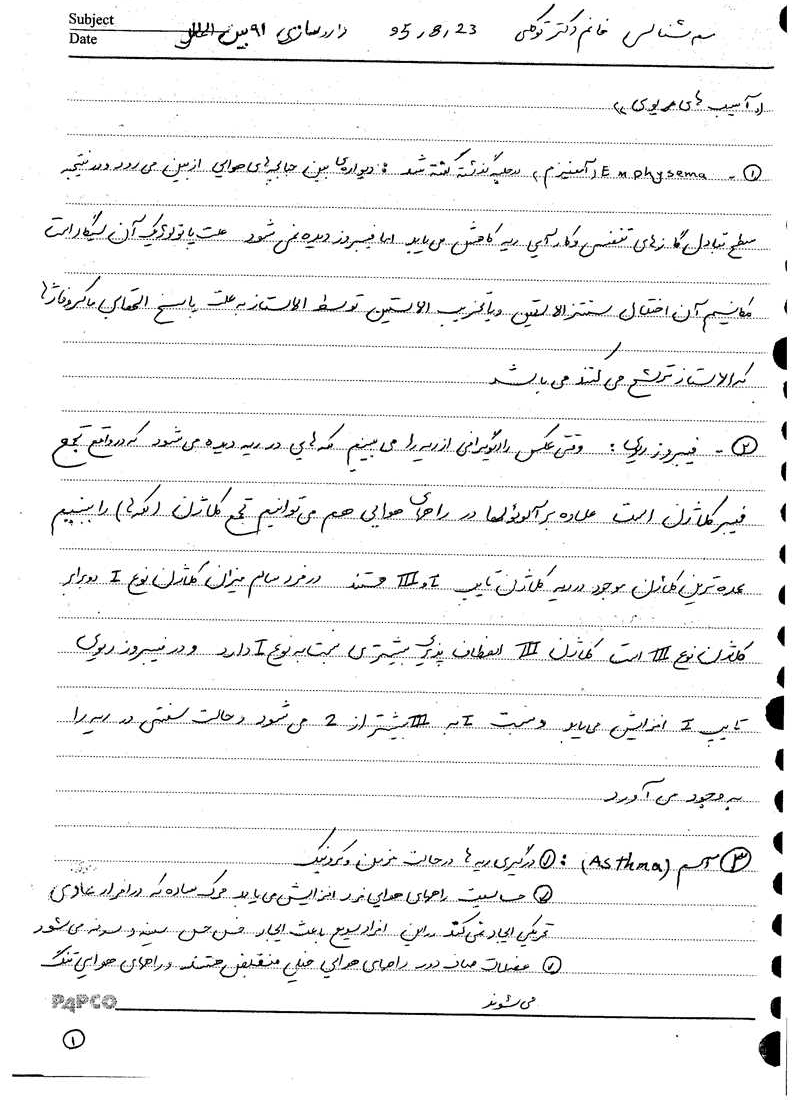 Subject
Date
سم شناسی خانم دکتر توکلی 95,8,23 داروسازی 91 بین الملل
«آسیب های ریوی»
① - Emphysema (آمفیزم) درجلسه گذشته گفته شد : دیواره‌ی بین حبابچه‌های هوایی ازبین می رود ودرنتیجه
سطح تبادل گازهای تنفسی وکارآیی ریه کاهش می‌یابد اما فیبروز دیده نمی شود علت پاتولوژیک آن سیگار است
مکانیسم آن اختلال سنتز الاستین ویا تخریب الاستین توسط الاستاز به علت پاسخ التهابی ماکروفاژها
که الاستاز ترشح می کنند می باشد
② - فیبروز ریوی : وقتی عکس رادیوگرافی از ریه را می بینیم لکه هایی در ریه دیده می شود که درواقع تجمع
فیبر کلاژن است علاوه بر آلوئولها در راههای هوایی هم می توانیم تجمع کلاژن (لکه ها) را ببینیم
عمده ترین کلاژن موجود در ریه کلاژن تایپ I و III هستند در فرد سالم میزان کلاژن نوع I دوبرابر
کلاژن نوع III است کلاژن III انعطاف پذیری بیشتری نسبت به نوع I دارد و در فیبروز ریوی
تایپ I افزایش می‌یابد و نسبت I به III بیشتر از 2 می شود و حالت سفتی در ریه را
به وجود می آورد
③ آسم (Asthma) : ① درگیری ریه ها درحالت مزمن وکرونیک
② حساسیت راههای هوایی فرد افزایش می یابد محرک ساده که در افراد عادی
تحریکی ایجاد نمی کند در این افراد سریع باعث ایجاد خس خس سینه و سرفه می شود
③ عضلات صاف دور راههای هوایی خیلی منقبض هستند و راههای هوایی تنگ
می شوند
PAPCO
①